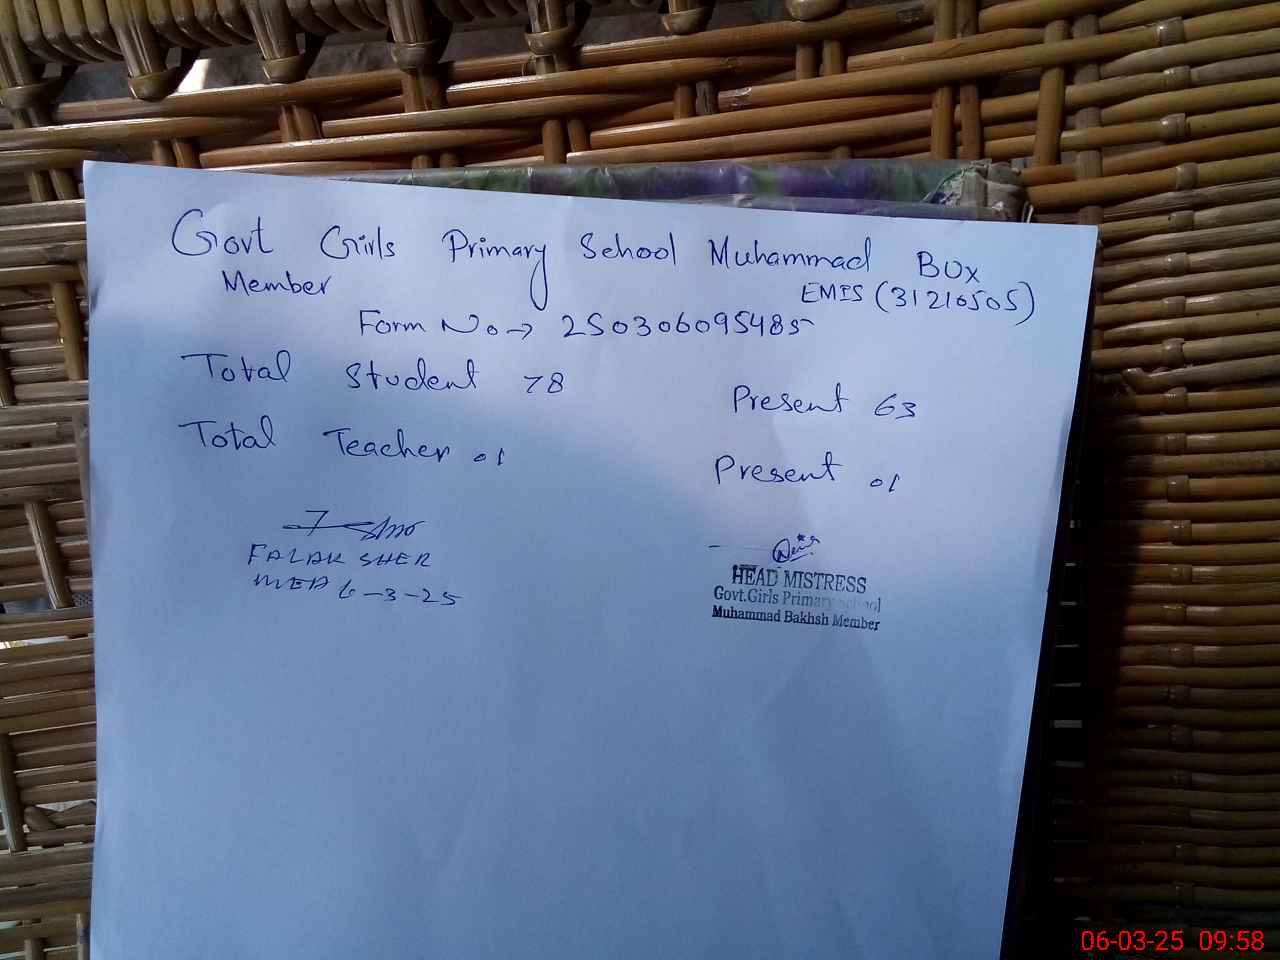 Govt Girls Primary School Muhammad Box
Member EMIS (31210505)
Form No → 250306095485
Total Student 78 Present 63
Total Teacher 01 Present 01
FALAK SHER
MEA 6-3-25
HEAD MISTRESS
Govt.Girls Primary School
Muhammad Bakhsh Member
06-03-25 09:58